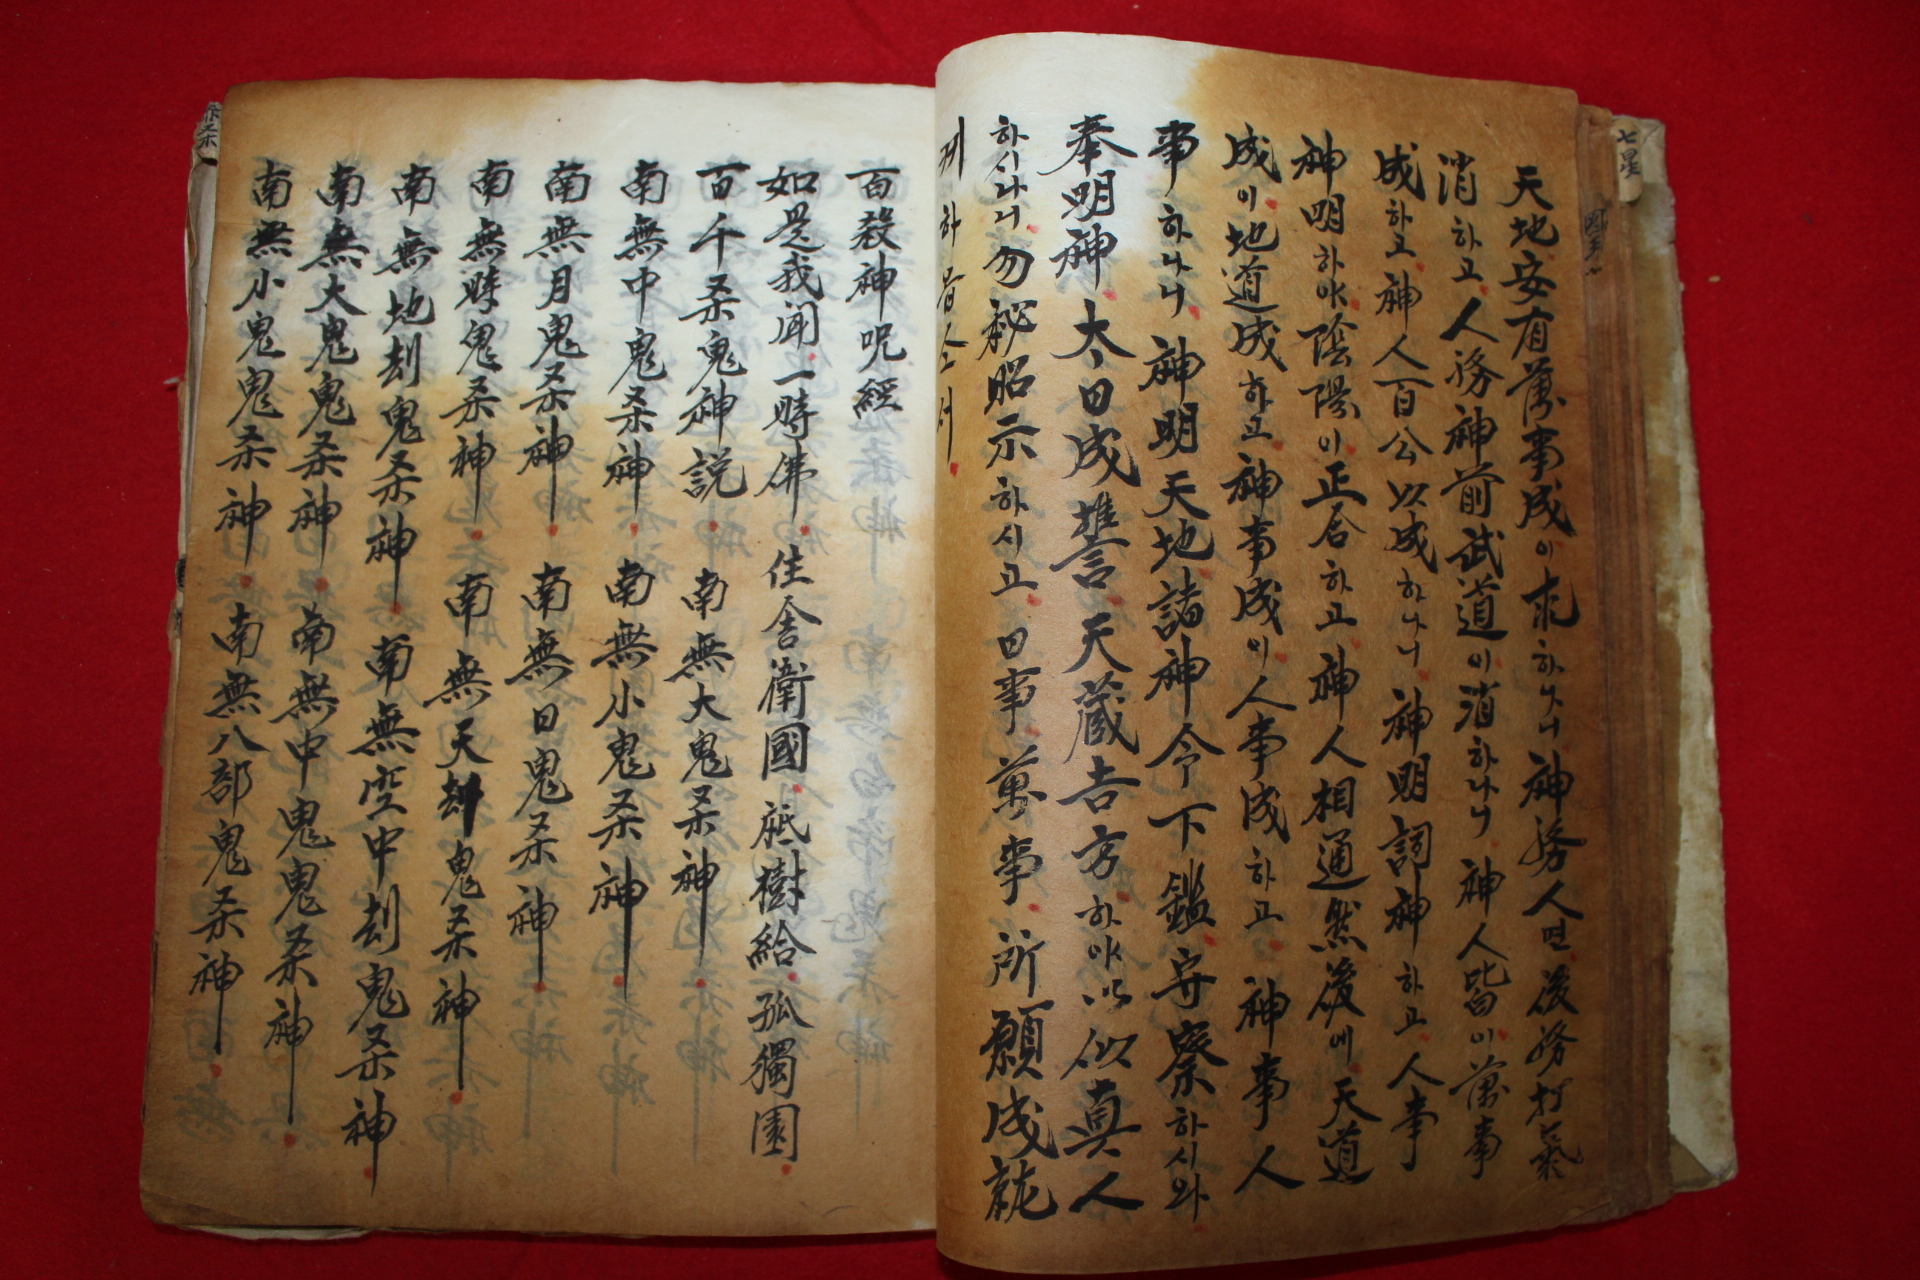 七星
天地安有萬事成이求하나니 神務人면 後務打氣
消하고 人務神前 武道이消하나니 神人皆이萬事
成하고 神人百公以成하나니 神明詞神하고 人事
神明하야 陰陽이正合하고 神人相通然後에 天道
成이地道成하고 神事成이人事成하고 神事人
事하나니 神明天地諸神令下鑑守察하시와
奉明神 太日成 誓言 天藏吉方하야 以似真人
하시나니 勿秘昭示하시고 日事萬事 所願成就
케하옵소서
百殺神呪經
如是我聞 一時佛 住舍衛國 祗樹給 孤獨園
百千杀鬼神說 南無大鬼杀神
南無中鬼杀神 南無小鬼杀神
南無月鬼杀神 南無日鬼杀神
南無時鬼杀神 南無天刼鬼杀神
南無地刼鬼杀神 南無空中刼鬼杀神
南無大鬼鬼杀神 南無中鬼鬼杀神
南無小鬼鬼杀神 南無八部鬼杀神